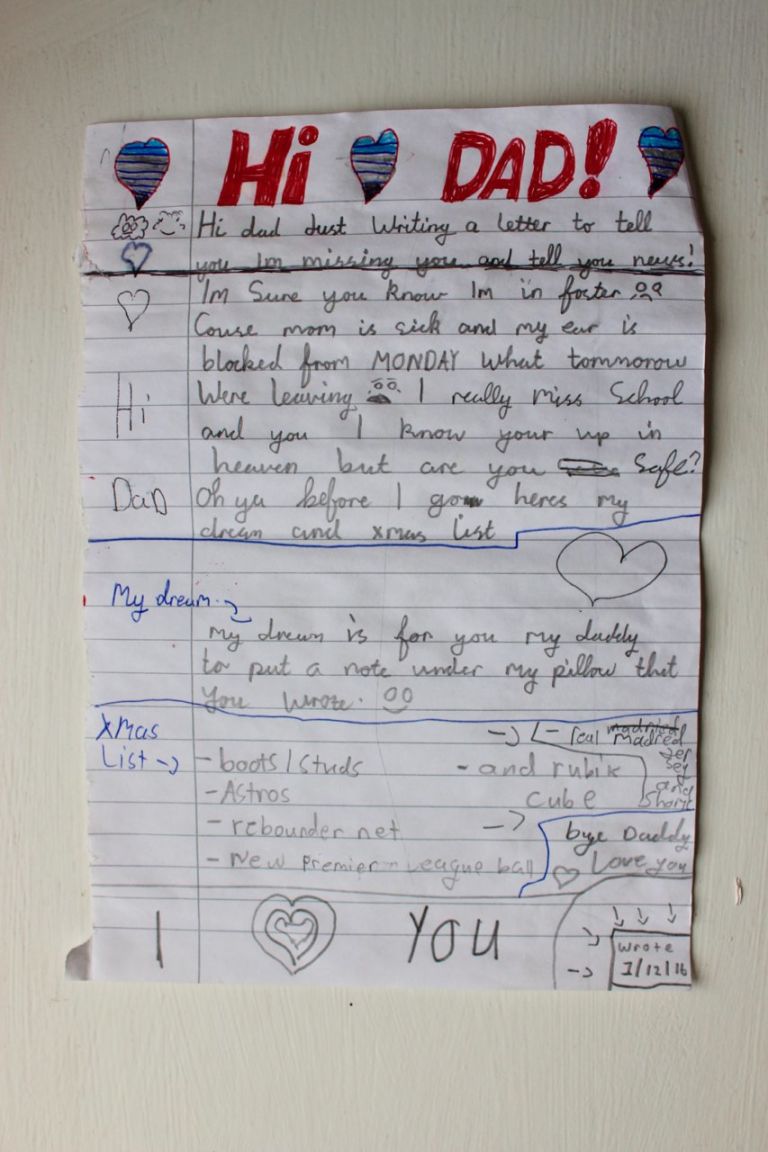 Hi DAD!
Hi dad Just Writing a letter to tell
you Im missing you and tell you news!
Im Sure you know Im in foster
Couse mom is sick and my ear is
blocked from MONDAY What tommorow
Hi
Were leaving I really miss School
and you I know your up in
heaven but are you Safe?
Dad
Oh ya before I go heres my
dream and xmas list
My dream.
my dream is for you my daddy
to put a note under my pillow that
you wrote.
Xmas
List
- real madred
jer
sey
and
Short
- boots/studs
- and rubik
cube
- Astros
- rebounder net
- New Premier League ball
bye Daddy
Love you
I YOU
Wrote
1/12/16